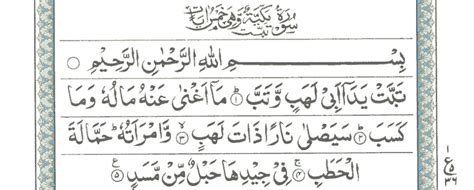 سُوْرَةُ تَبَّتْ مَكِّيَّةٌ وَّهِيَ خَمْسُ اٰيَاتٍ
بِسْمِ اللهِ الرَّحْمٰنِ الرَّحِيْمِ ○
تَبَّتْ يَدَآ اَبِيْ لَهَبٍ وَّتَبَّ ۝١ مَآ اَغْنٰى عَنْهُ مَالُهٗ وَمَا
كَسَبَ ۝٢ سَيَصْلٰى نَارًا ذَاتَ لَهَبٍ ۝٣ وَّامْرَاَتُهٗ ؕ حَمَّالَةَ
الْحَطَبِ ۝٤ فِيْ جِيْدِهَا حَبْلٌ مِّنْ مَّسَدٍ ۝٥ ع